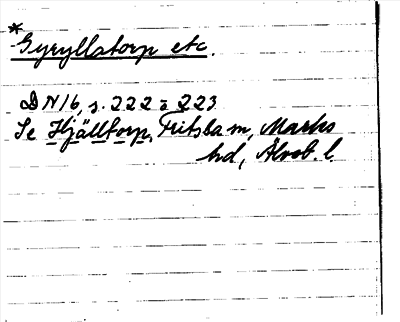 *Gyryllatorp etc.
DN 16, s. 222 o 223
Se Hjälltorp, Fritsla sn, Marks
hd, Älvsb. l.